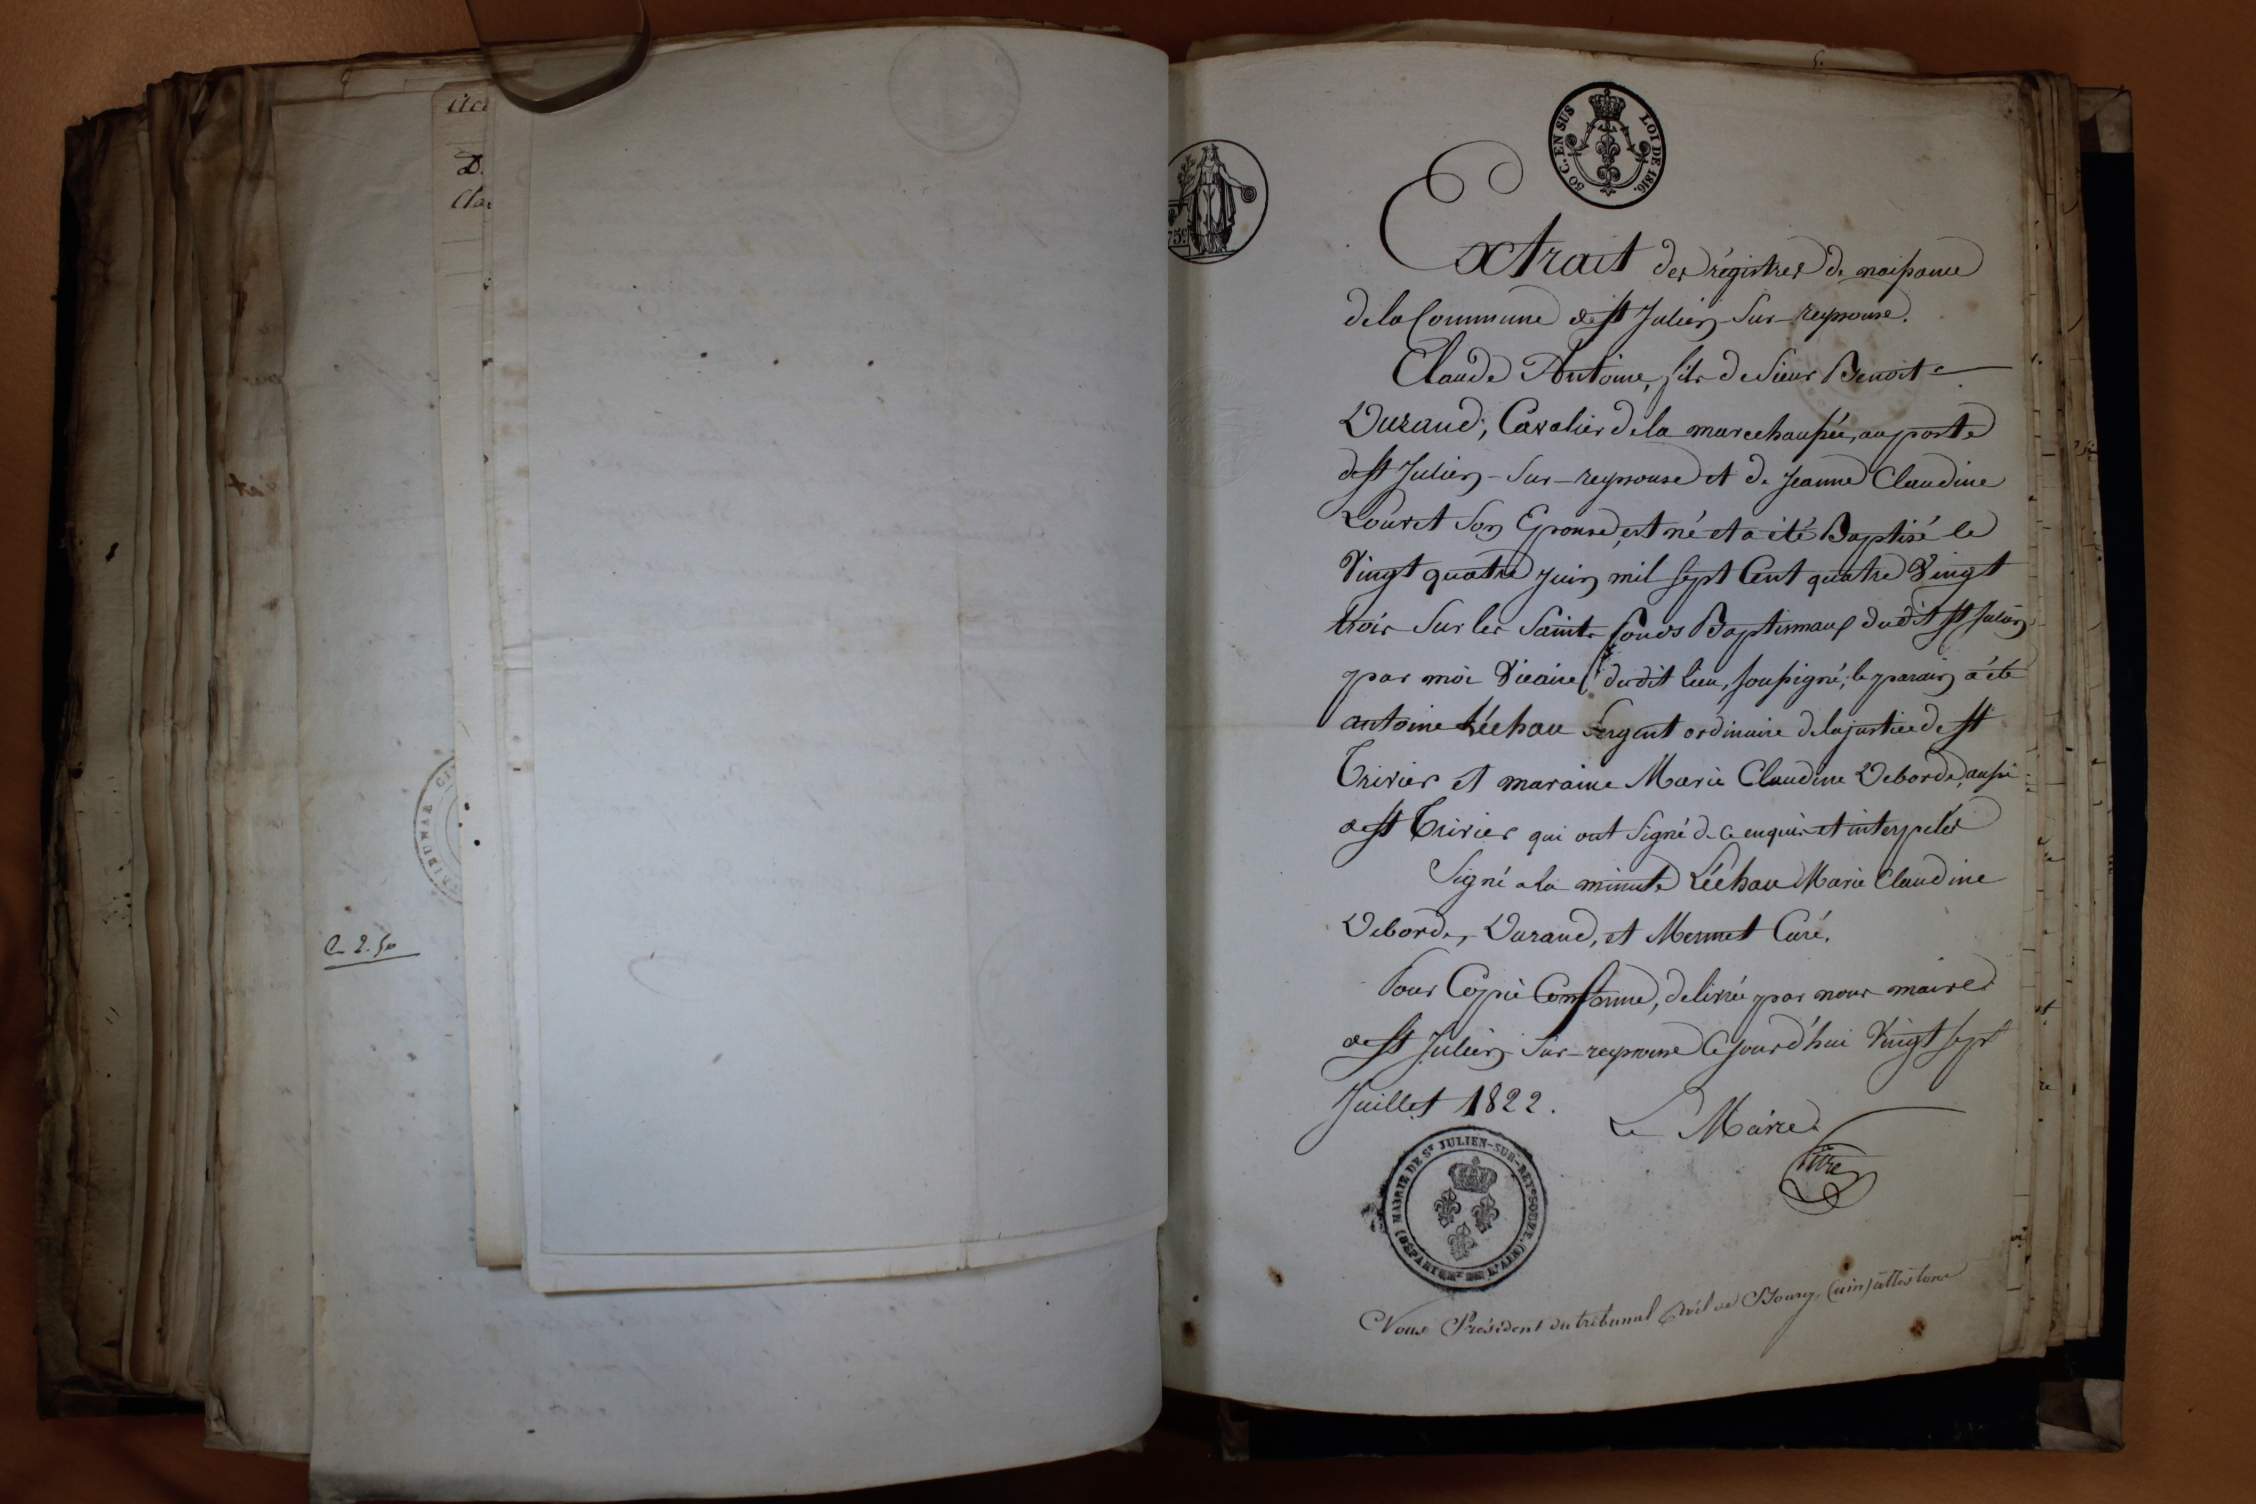 D.
C 2.50
TRIBUNAL
50 C. EN SUS
LOI DE 1816.
75c
Extrait des régistres de naissance
de la Commune de St Julien Sur-reyssouse.
Claude Antoine, fils de Sieur Benoit
Durand, Cavalier de la marechaussée, au poste
de St Julien-Sur-reyssouse et de jeanne Claudine
Louvet Son Epouse, est né et a été Baptisé le
Vingt quatre juin mil sept Cent quatre Vingt
trois Sur les Saints fonds Baptismaux dudit St Julien
par moi Vicaire dudit lieu, soussigné; le parain a été
antoine Léchau Sergent ordinaire de la justice de St
Trivier et maraine Marie Claudine Deborde, aussi
de St Trivier qui ont Signé de ce enquis et interpelés
Signé a la minute Léchau Marie Claudine
Deborde, Durand, et Mermet Curé.
Pour Copie Conforme, delivrée par nous maire
de St Julien Sur-reyssouse Cejourd'hui Vingt sept
Juillet 1822.
Le Maire
MAIRIE DE ST JULIEN-SUR-REYSSOUZE. (DÉPARTEMT DE L'AIN)
Nous Président du tribunal Civil de Bourg, (ain) attestons